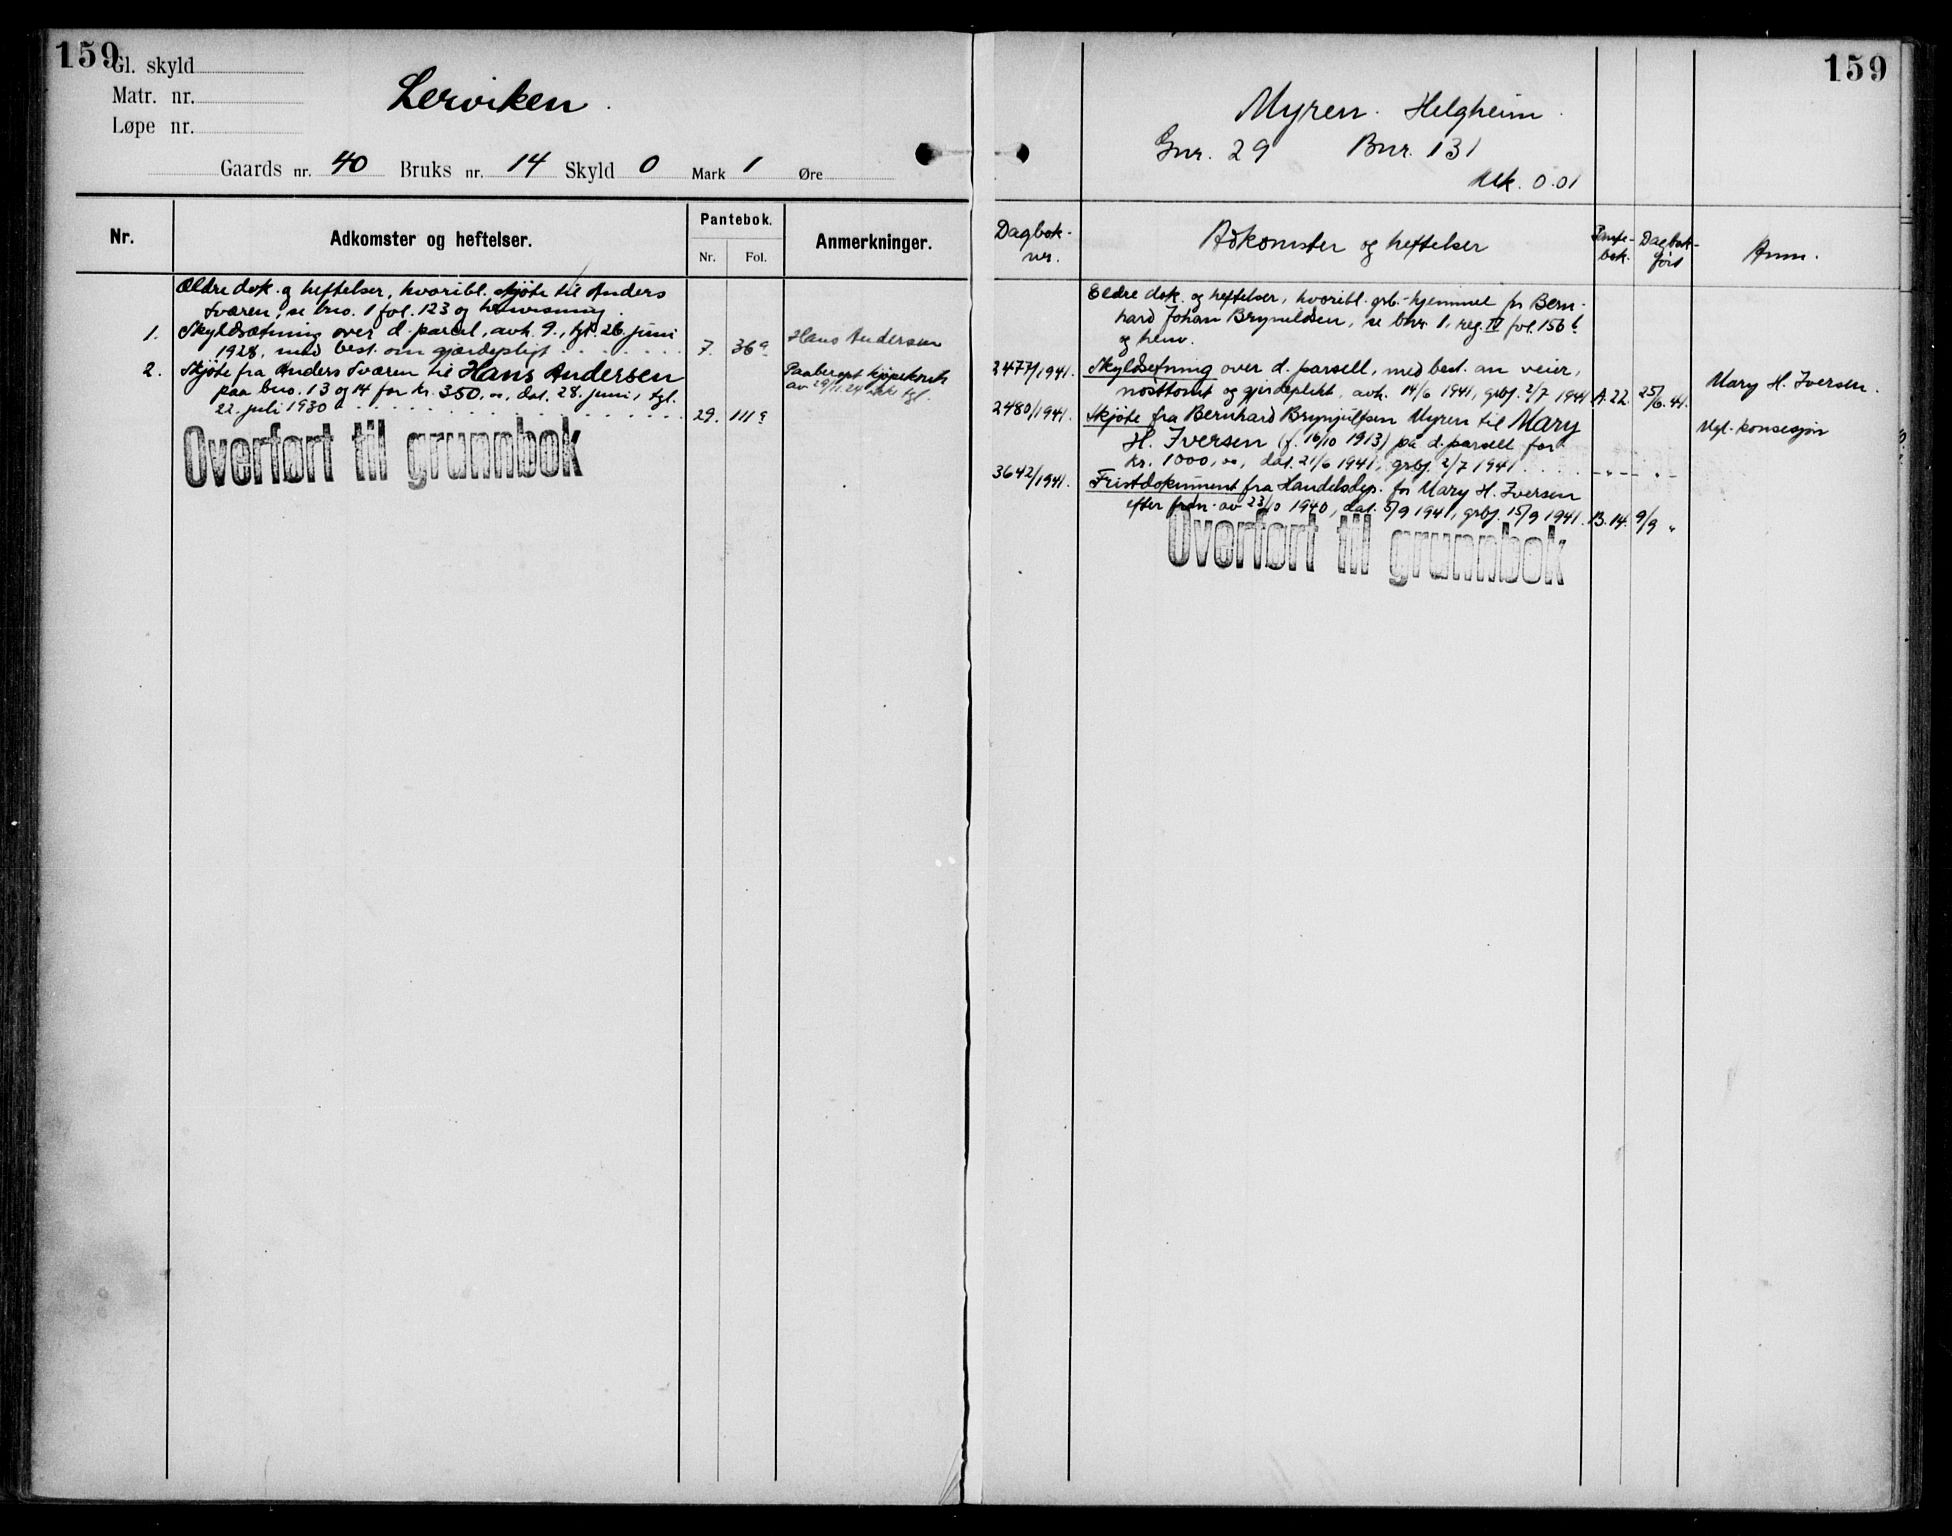 159
Gl. skyld
Matr. nr.
Løpe nr.
Lerviken.
Gaards nr. 40 Bruks nr. 14 Skyld 0 Mark 1 Øre
Nr.
Adkomster og heftelser.
Pantebok.
Nr. Fol.
Anmerkninger.
Ældre dok. og heftelser, hvoribl. skjøte til Anders
Sværen, se bno. 1 fol. 123 og henvisning.
1. Skyldsætning over d. parcel, avh. 9., tgl. 26 juni
1928, med best. om gjærdepligt . . . . . . . 7. 36a
Hans Andersen
2. Skjøte fra Anders Sværen til Hans Andersen
paa bno. 13 og 14 for kr. 350,00, dat. 28. juni, tgl.
22. juli 1930 . . . . . . . . . . . . 29. 111a
Paaberopt kjøpekontr.
av 29/11.24 ikke tgl.
Overført til grunnbok
159
Myren. Helgheim.
Gnr. 29 Bnr. 131
Mk. 0.01
Dagbok-
nr.
Adkomster og heftelser
Pante-
bok.
Dagbok-
ført
Anm.
Eldre dok. og heftelser, hvoribl. grb.-hjemmel for Bern-
hard Johan Brynildsen, se bnr. 1, reg. IV fol. 156b
og henv.
2477/1941. Skyldsetning over d. parsell, med best. om veier,
nosttomt og gjerdeplikt, avh. 14/6 1941, grbf. 2/7 1941 A.22. 25/6.41.
Mary H. Iversen.
2480/1941. Skjøte fra Bernhard Brynjulfsen Myren til Mary
H. Iversen (f. 16/10 1913) på d. parsell for
kr. 1000,00, dat. 21/6 1941, grbf. 2/7 1941 . . . . -"- -"-
Mgl. konsesjon
3642/1941. Fristdokument fra Handelsdep. for Mary H. Iversen
efter frdn. av 23/10 1940, dat. 5/9 1941, grbf. 15/9 1941. B.14. 9/9 "
Overført til grunnbok